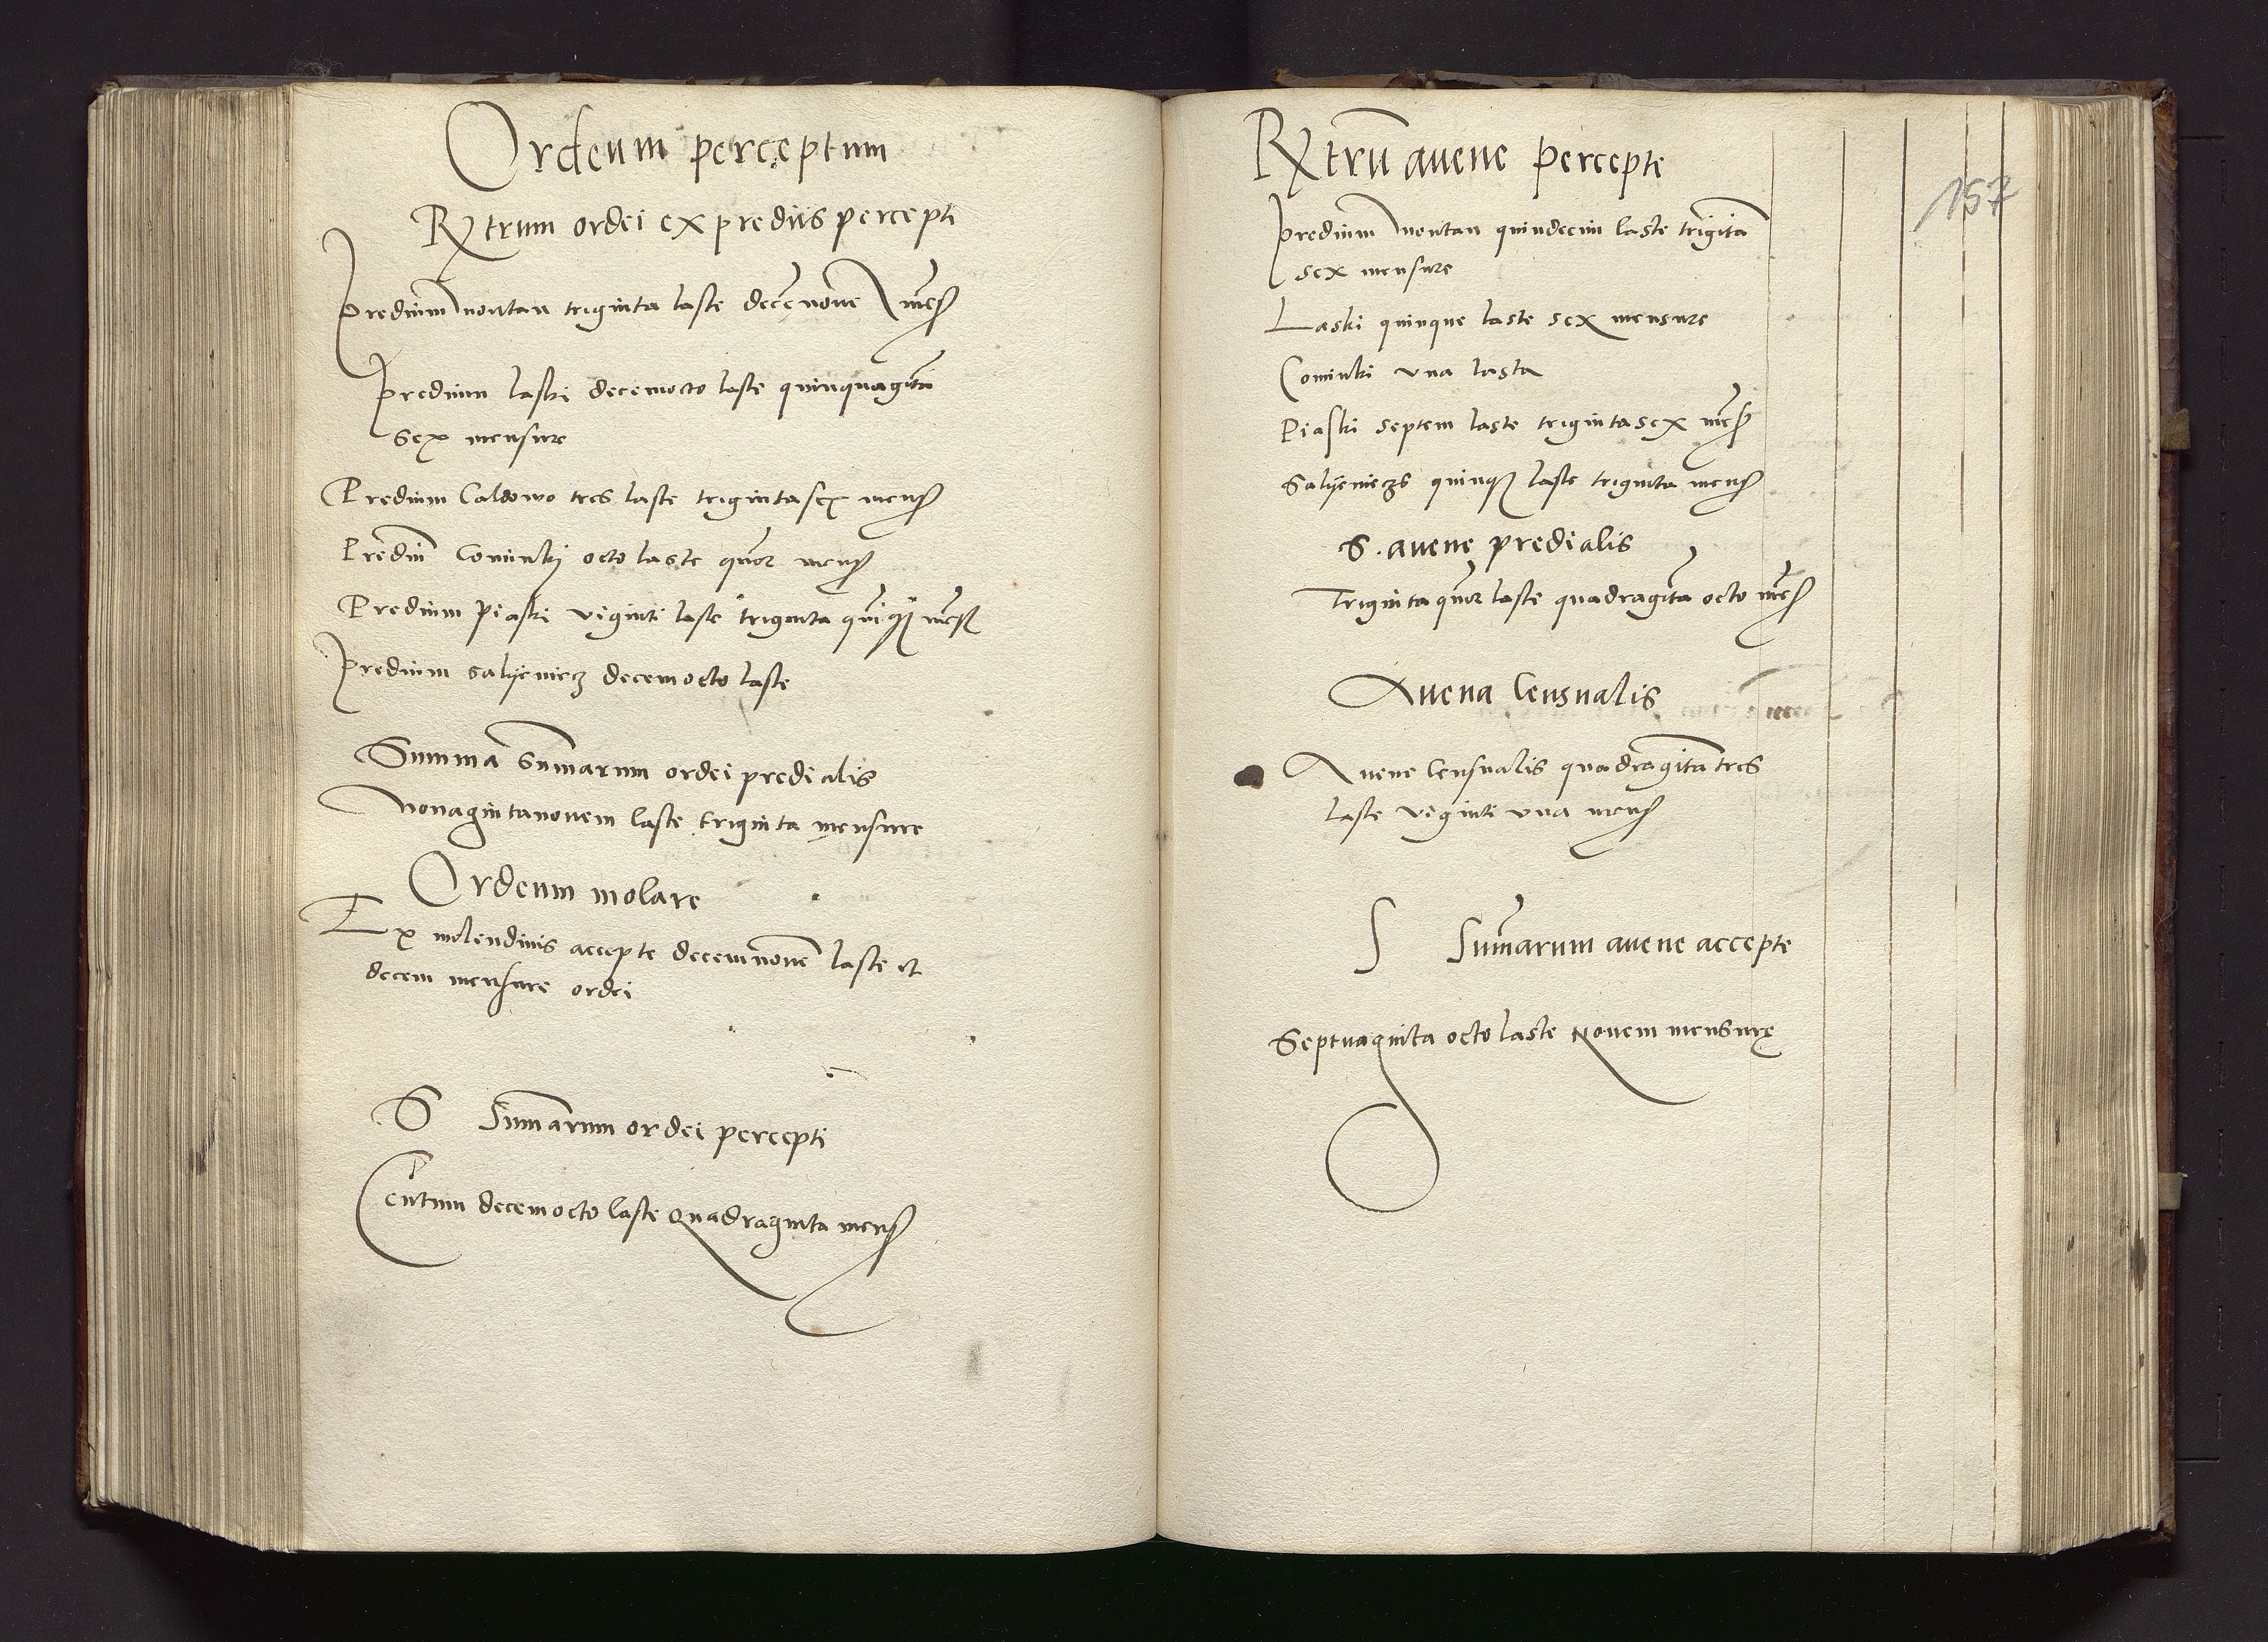 Ordeum perceptum
Rxtrum ordei ex prediis percepti
Predium Montan triginta laste decẽnoue mẽs
Predium laski decemocto laste quinquagĩta
sex mensure
Predium Caldowo tres laste trigintasex mens
Prediũ Cominki octo laste quor mens
Predium Piaski viginti laste triginta quĩq mẽs
Predium saliieniecz decemocto laste
Summa summarum ordei predialis
Nonagintanouem laste triginta mensure
Ordeum molare
Ex molendinis accepte decemnouẽ laste et
decem mensure ordei
S Sum̃arum ordei percepti
Centum decemocto laste Quadraginta mens
Rxtrũ auene percepte
157
Predium Montan quindecim laste trigĩta
sex mensure
Laski quinque laste sex mensure
Cominki vna lasta
Piaski septem laste trigintasex mẽs
Saliienieczs quinq laste triginta mens
S. auene predialis
Triginta quor laste quadragĩta octo mẽs
Auena Censualis
Auene Censualis quadragĩta tres
laste viginti vna mens
S Sum̃arum auene accepte
Septuaginta octo laste Nouem mensurę